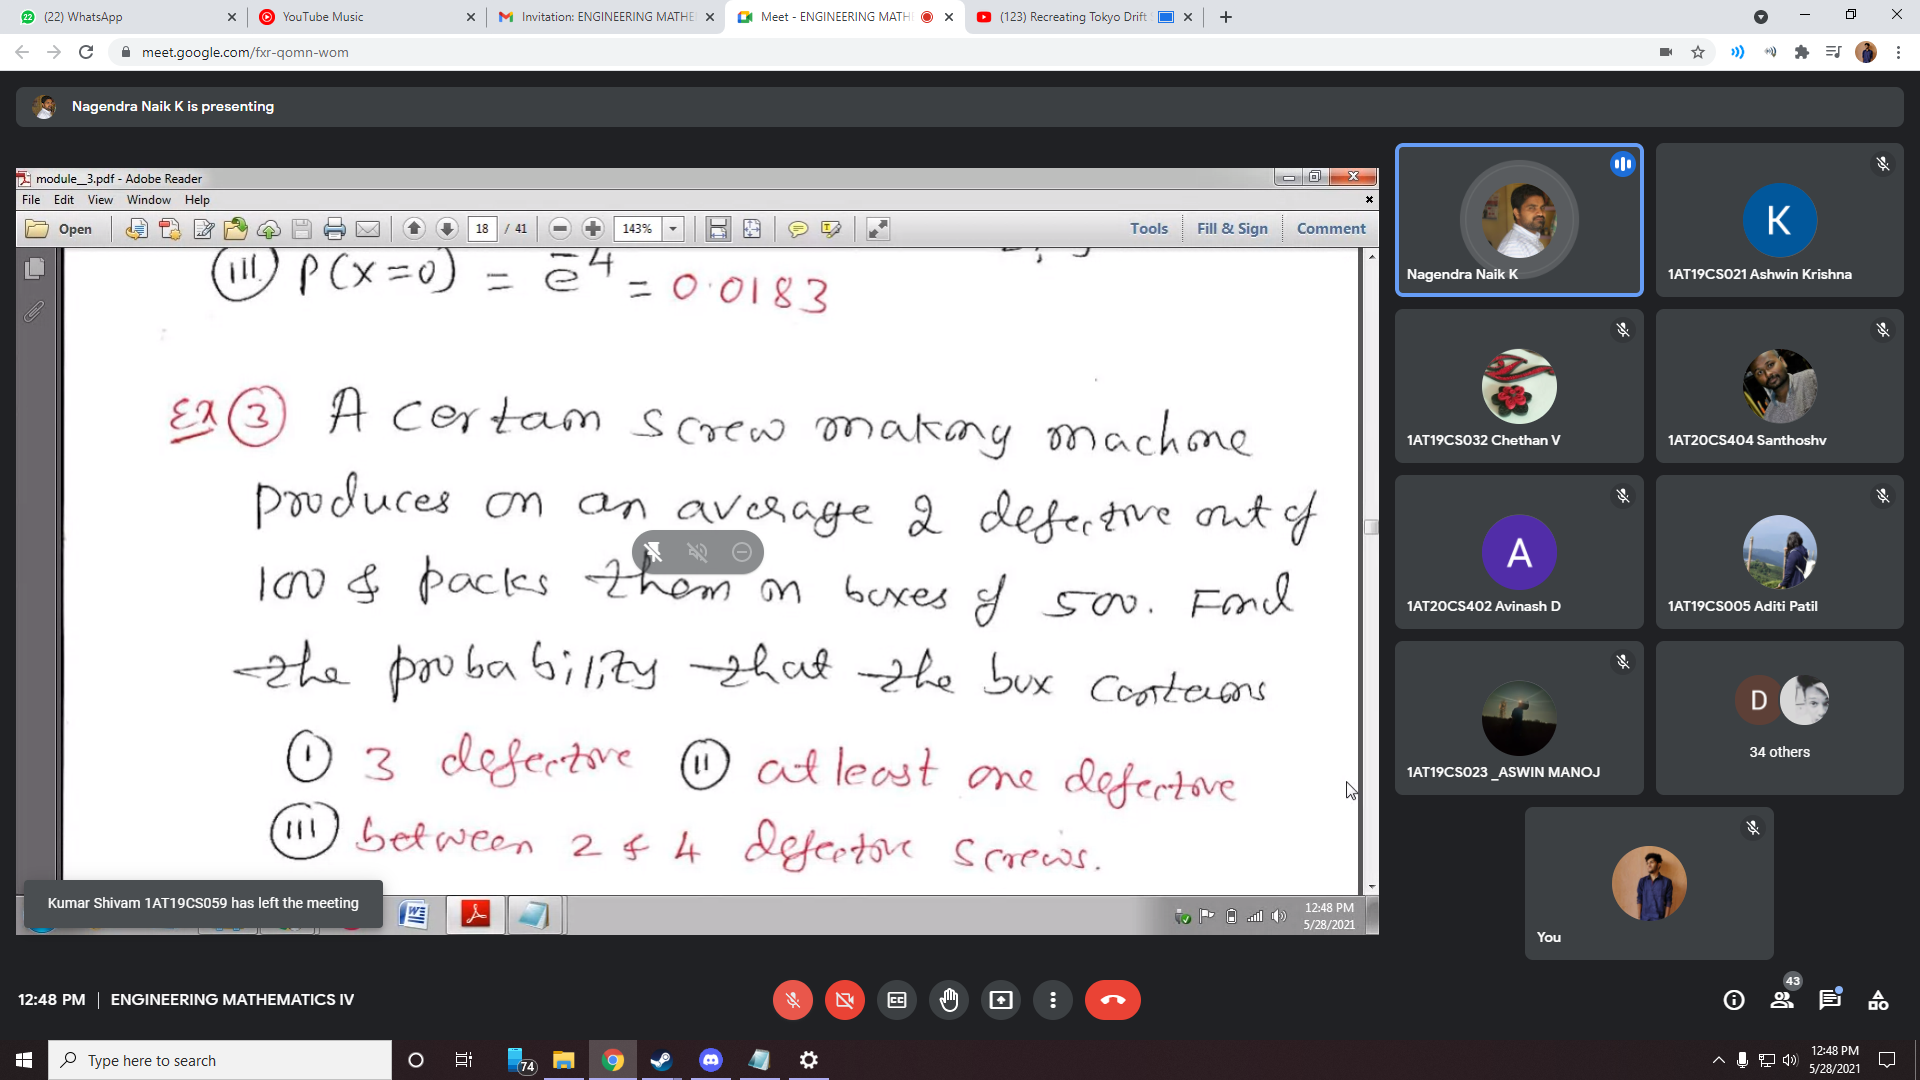 (22) WhatsApp
YouTube Music
Invitation: ENGINEERING MATHE
Meet - ENGINEERING MATH
(123) Recreating Tokyo Drift
meet.google.com/fxr-qomn-wom
Nagendra Naik K is presenting
module__3.pdf - Adobe Reader
File Edit View Window Help
Open 18 / 41 143% Tools Fill & Sign Comment
(iii) P(x=0) = e^-4 = 0.0183
Ex (3) A certain screw making machine
produces on an average 2 defective out of
100 & packs them in boxes of 500. Find
the probability that the box contains
(i) 3 defective (ii) atleast one defective
(iii) between 2 & 4 defective screws.
Kumar Shivam 1AT19CS059 has left the meeting
12:48 PM
5/28/2021
Nagendra Naik K
K
1AT19CS021 Ashwin Krishna
1AT19CS032 Chethan V
1AT20CS404 Santhoshv
A
1AT20CS402 Avinash D
1AT19CS005 Aditi Patil
1AT19CS023 _ASWIN MANOJ
D
34 others
You
12:48 PM | ENGINEERING MATHEMATICS IV
43
Type here to search
74
12:48 PM
5/28/2021